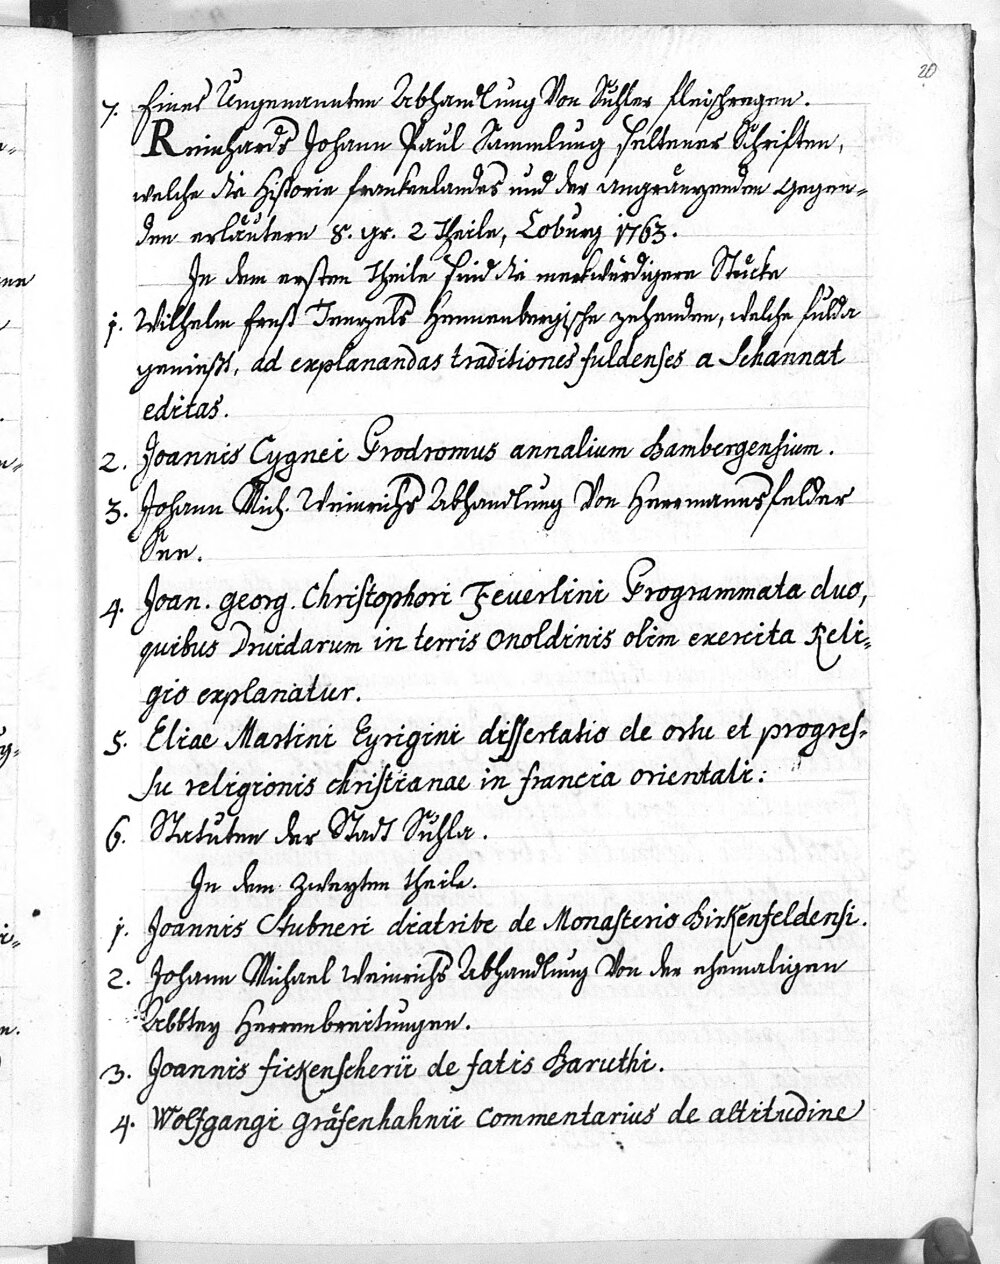 20
7. Eines Ungenannten Abhandlung Von Suhler fleischregen.
Reinhards Johann Paul Sammlung seltener Schriften,
welche die Historie frankenlandes und der angränzenden Gegen=
den erläutern 8. gr. 2 Theile, Coburg 1763.
In dem ersten Theile sind die merkwürdigere Stücke
1. Wilhelm Ernst Tenzels Hennenbergische zehenden, welche fulda
genießt, ad explanandas traditiones fuldenses a Schannat
editas.
2. Joannis Cygnei Prodromus annalium Bambergensium.
3. Johann Mich. Weinrichs Abhandlung Von Herrmannsfelder
See.
4. Joan. georg. Christophori Feuerlini Programmata duo,
quibus Druidarum in terris Onoldinis olim exercita Reli=
gio explanatur.
5. Eliae Martini Eyrigini dissertatio de ortu et progres=
su religionis christianae in francia orientali:
6. Statuten der Stadt Suhla.
In dem zweyten theile.
1. Joannis Stubneri diatribe de Monasterio Birkenfeldensi.
2. Johann Michael Weinrichs Abhandlung Von der ehemaligen
Abbtey Herrenbreitungen.
3. Joannis fickenscherii de fatis Baruthi.
4. Wolfgangi gräfenhahnii Commentarius de altitudine